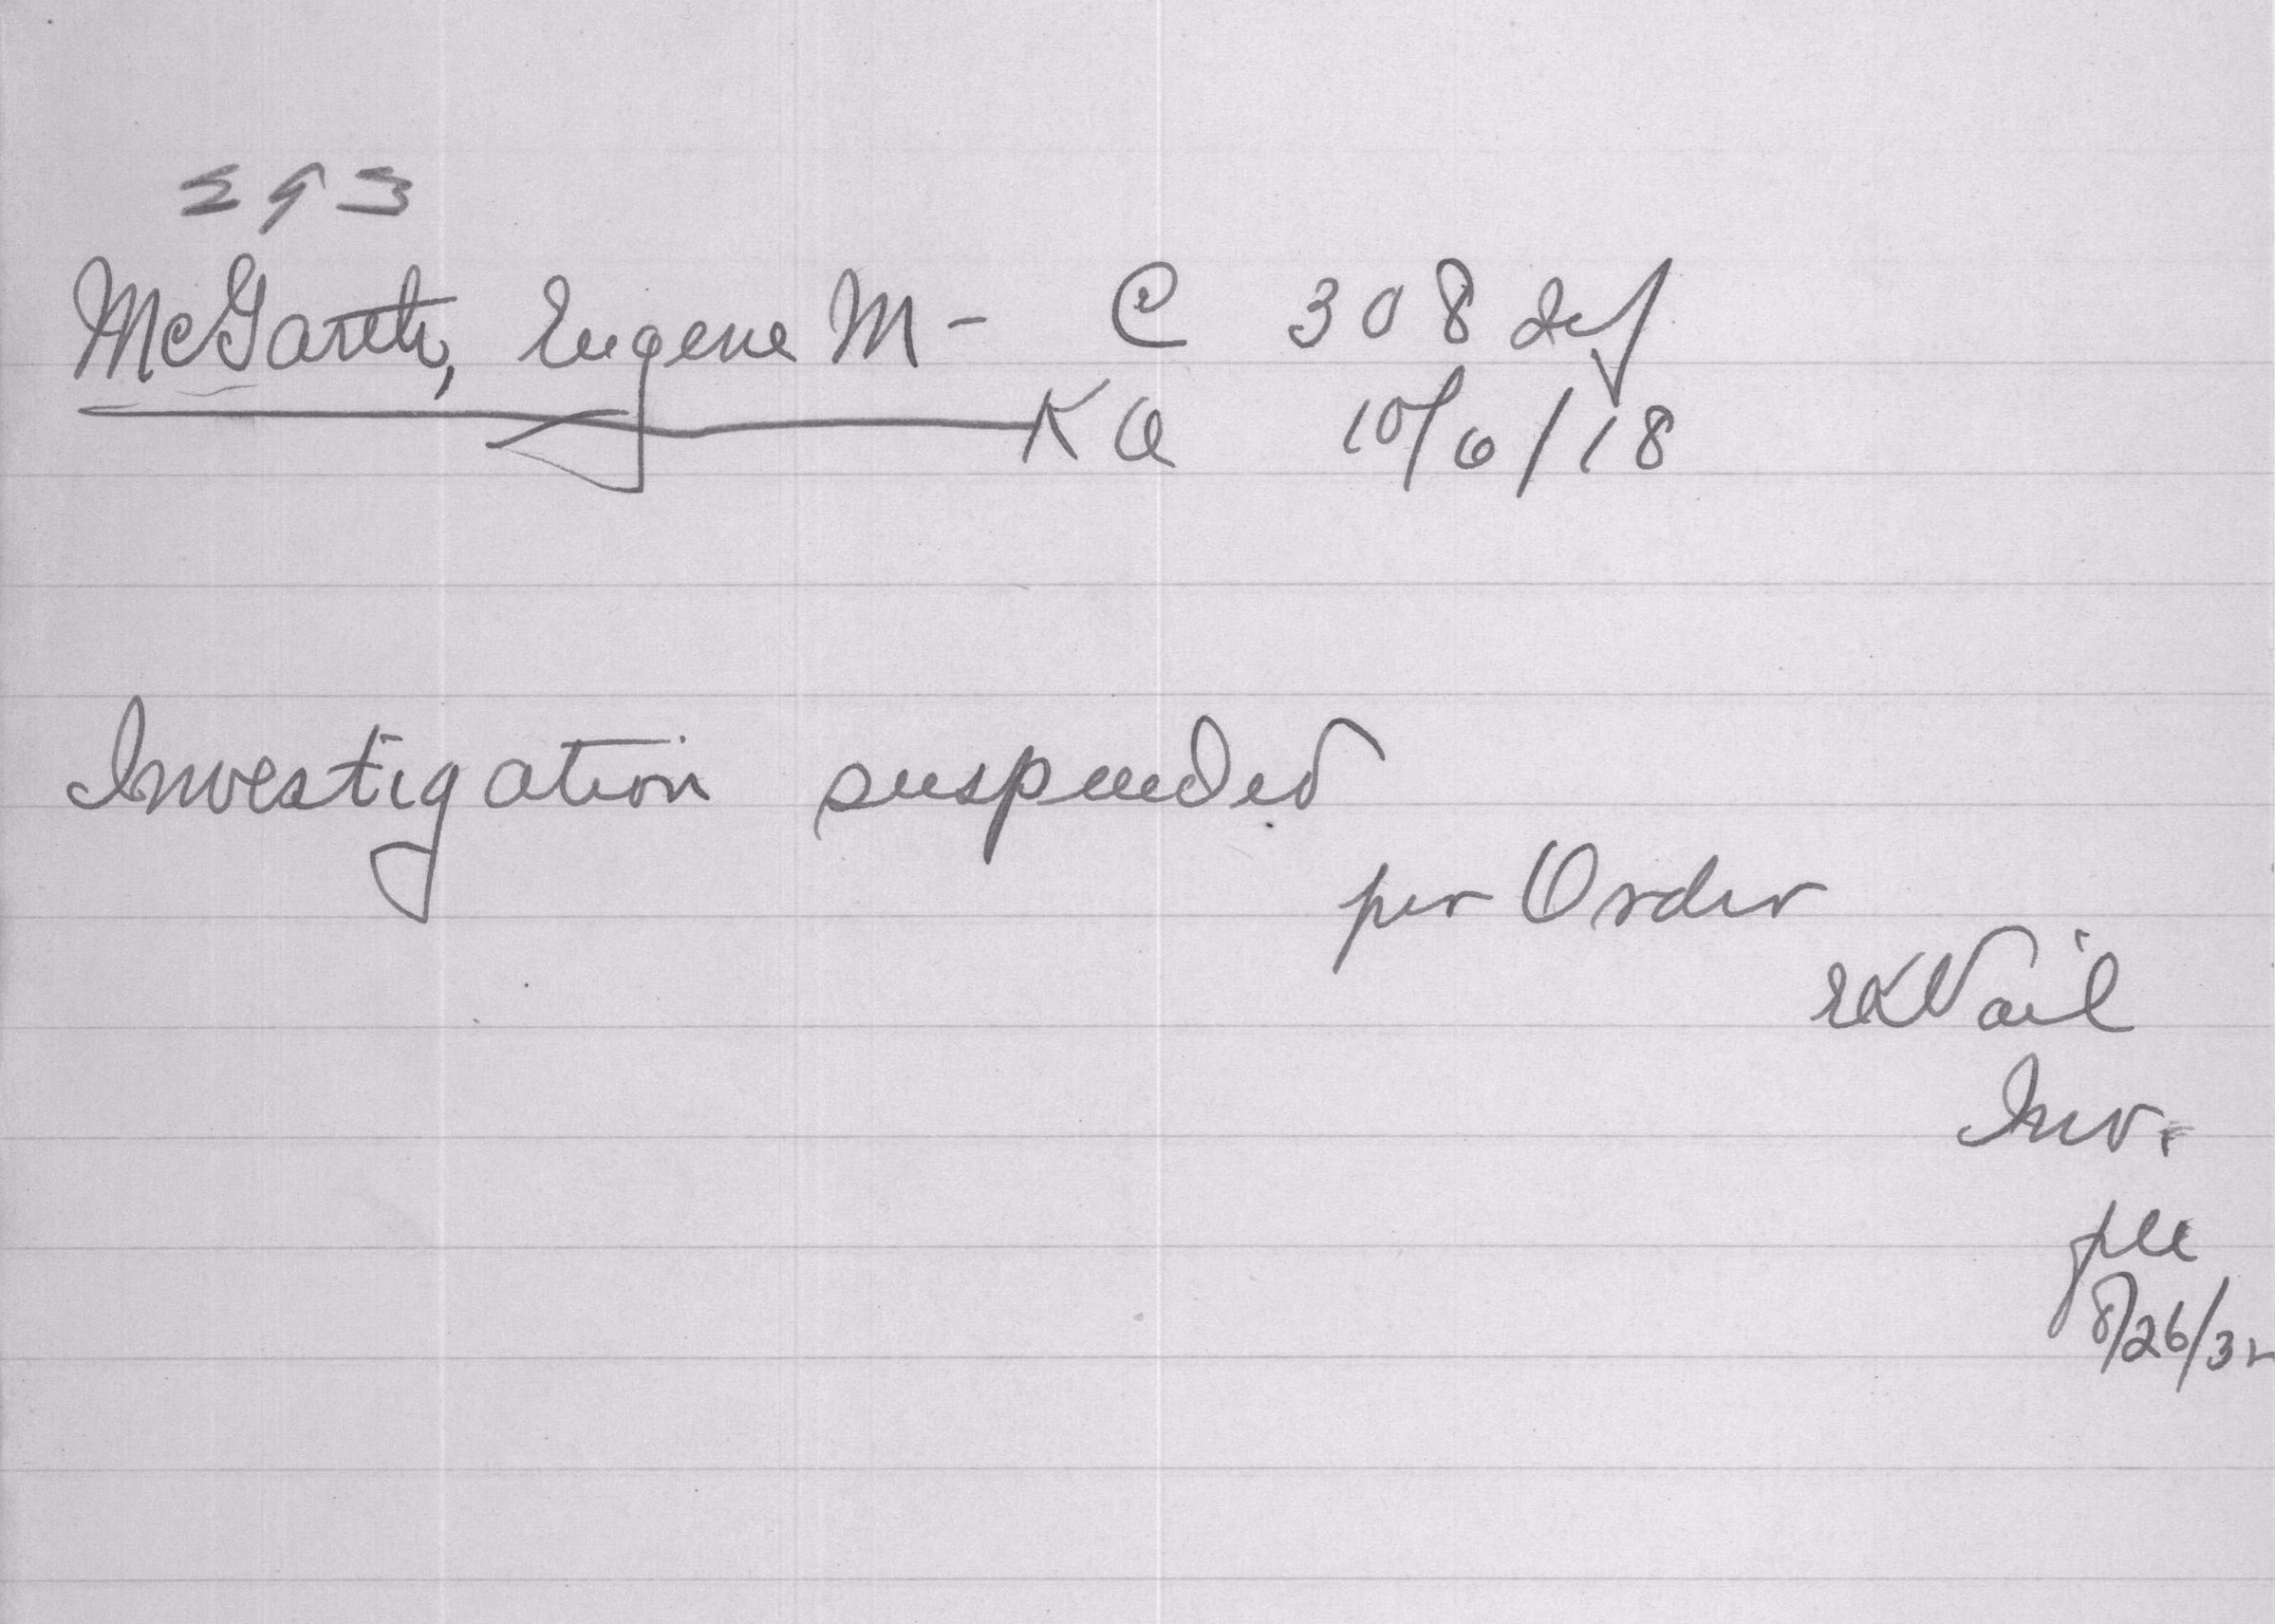 293
McGarth, Eugene M - C 308 Inf
KA 10/6/18
Investigation suspended
per Order
EKVail
Inv.
8/26/32